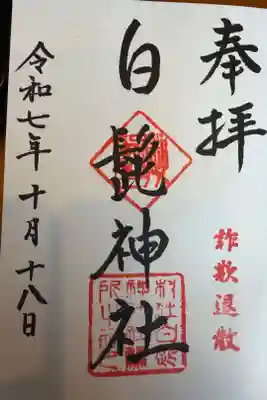 奉拝
詐欺退散
白髭神社
令和七年十月十八日